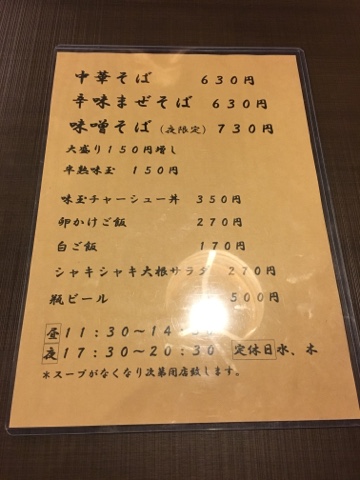 中華そば 630円
辛味まぜそば 630円
味噌そば(夜限定) 730円
大盛り150円増し
半熟味玉 150円
味玉チャーシュー丼 350円
卵かけご飯 270円
白ご飯 170円
シャキシャキ大根サラダ 270円
瓶ビール 500円
昼 11:30～14:30
夜 17:30～20:30 定休日 水、木
*スープがなくなり次第閉店致します。